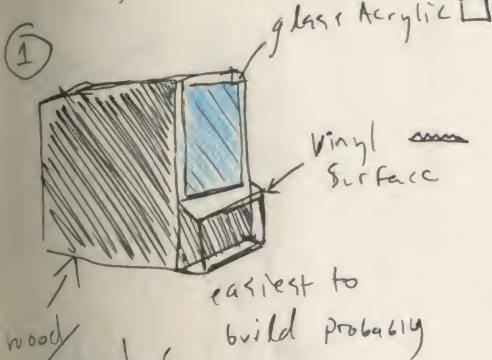 glass Acrylic
1
Vinyl
Surface
easiest to
build probably
wood